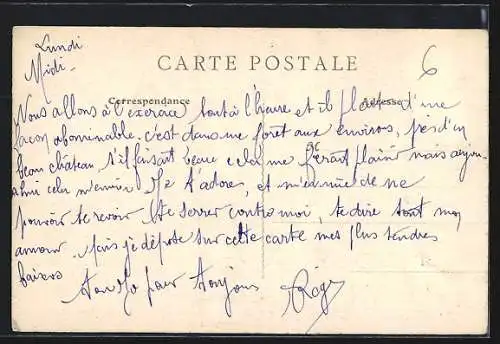 Lundi
Midi.
6
CARTE POSTALE
Correspondance
Adresse
Nous allons à l'exercice tout à l'heure et il pleut d'une
façon abominable. c'est dans une foret aux environs, près d'un
beau château s'il faisait beau cela me ferait plaisir mais aujour-
d'hui cela m'ennuie. Je t'adore, et m'ennuie de ne
pouvoir te revoir te serrer contre moi, te dire tout mon
amour. Mais je dépose sur cette carte mes plus tendres
baisers
Ton pour toujours